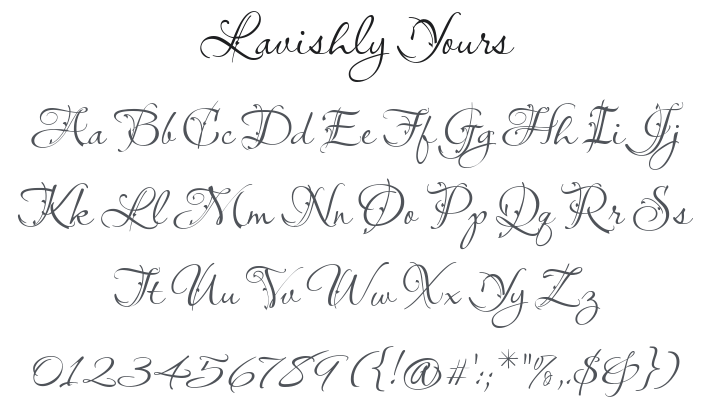 Lavishly Yours
Aa Bb Cc Dd Ee Ff Gg Hh Ii Jj
Kk Ll Mm Nn Oo Pp Qq Rr Ss
Tt Uu Vv Ww Xx Yy Zz
0123456789 ({!@#':;*"%,.$&})